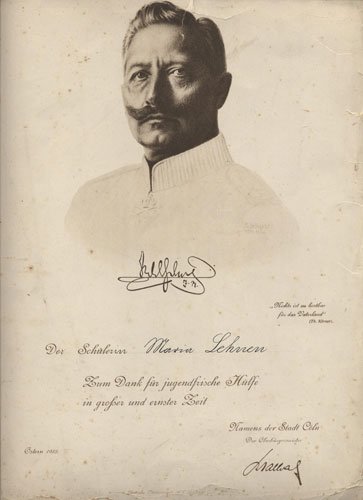 Wilhelm
I. R.
„Nichts ist zu kostbar
für das Vaterland“
(Th. Körner)
Der Schülerin Maria Lehnen
Zum Dank für jugendfrische Hülfe
in großer und ernster Zeit
Namens der Stadt Cöln
Der Oberbürgermeister
Ostern 1915.